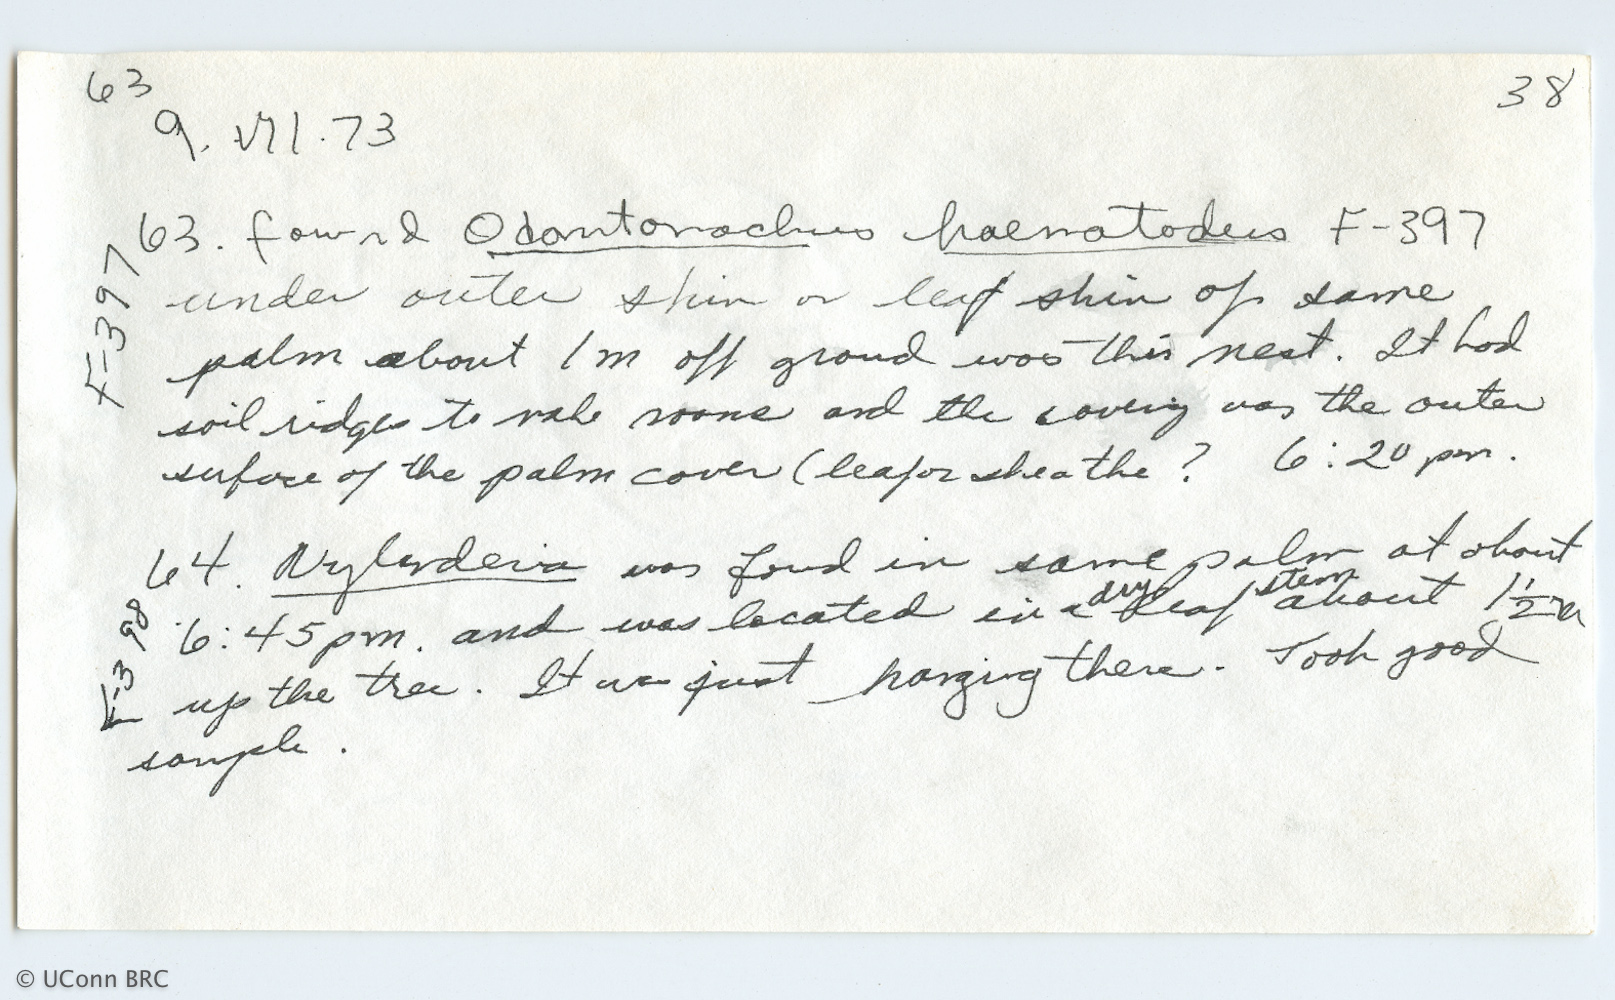 63
38
9.VII.73
63. found Odontomachus haematodus F-397
F-397
under outer skin or leaf skin of same
palm about 1m off groud was this nest. It had
soil ridges to make rooms and the covering was the outer
surface of the palm cover (leaf or sheathe? 6:20 pm.
64. Nylanderia was found in same palm at about
F-398
6:45pm. and was located in a dry leaf stem about 1½m
up the tree. It was just hanging there. Took good
sample.
© UConn BRC